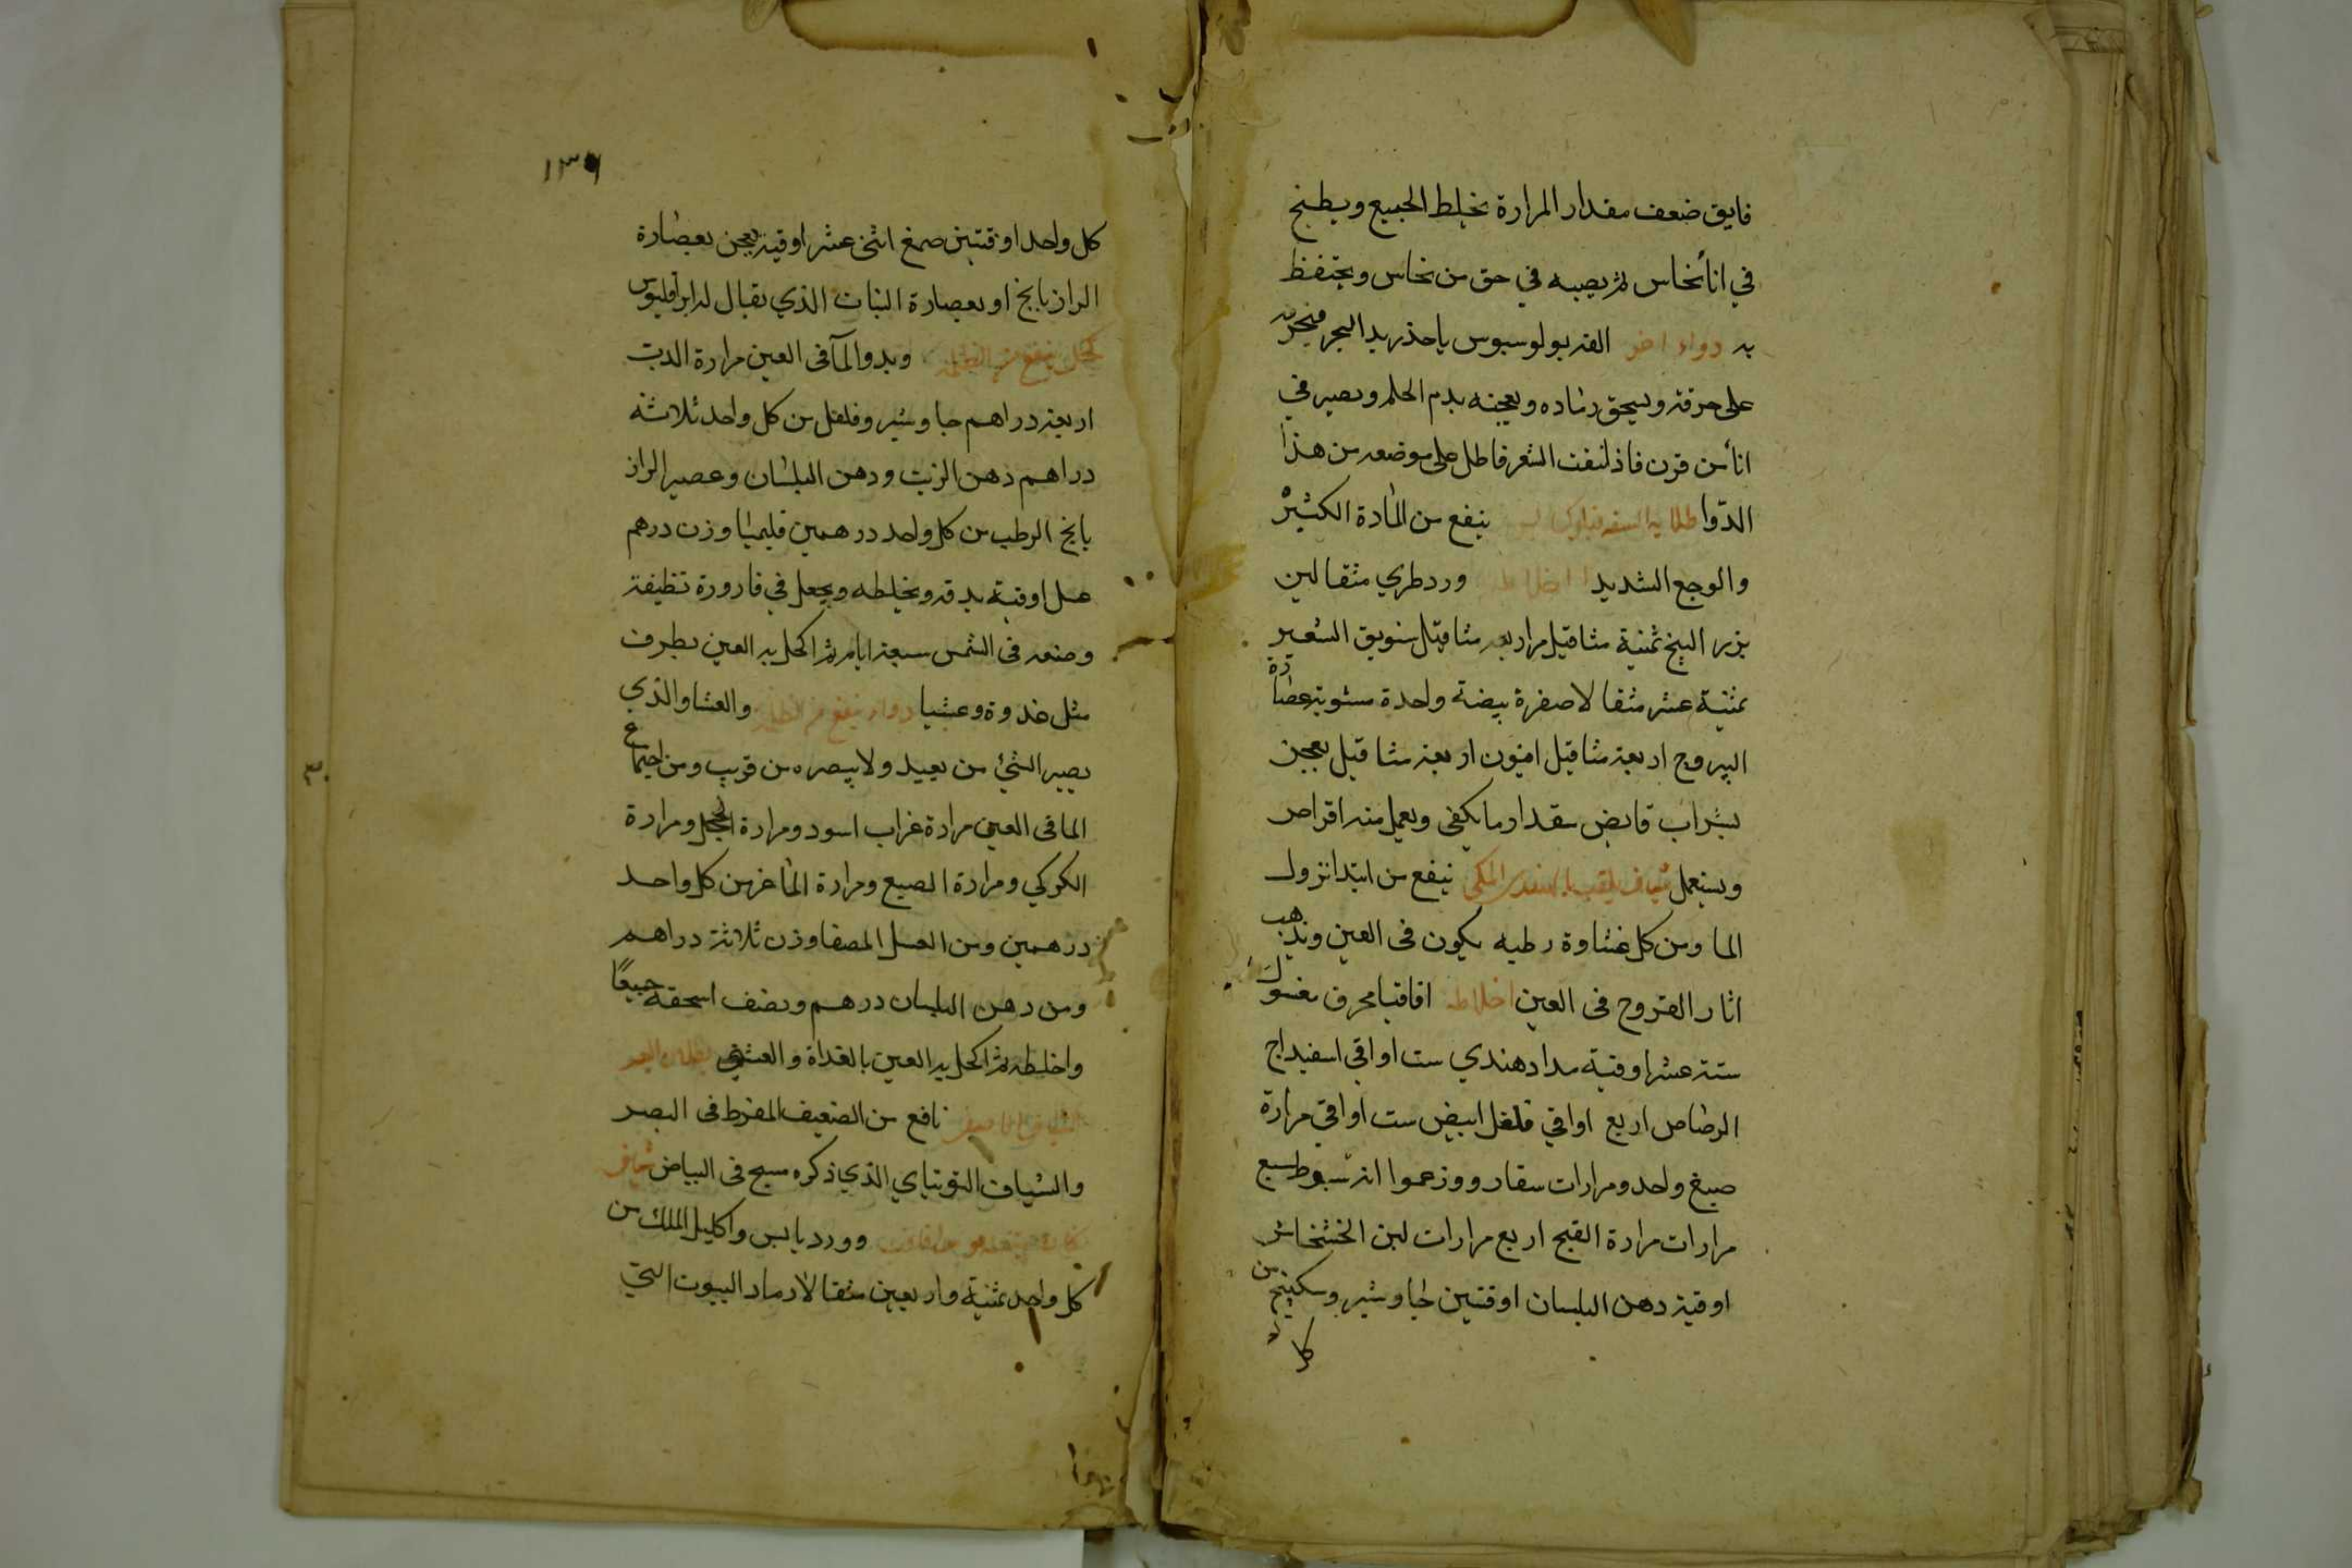 فايق ضعف مقدار المرارة يخلط الجميع ويطبخ
في اناء نحاس ثم يصيبه في حق من نحاس ويحتفظ
به دواء اخر الفه بولوسبوس ياخذ زبد البحر فيحرقه
على حرقه ويسحق رماده ويعجنه بدم الحلم ويصير في
انأ من قرن فاذا نتفت الشعر فاطل على موضعه من هذا
الدوا ينفع من المادة الكثيرة
والوجع الشديد اخلاطه ورد طري مثقالين
بزر البنج ثمنية مثاقيل مر اربعه مثاقيل سويق الشعير
ثمنية عشر مثقالا صفرة بيضة واحدة مشوية عصارة
اليبروح اربعة مثاقيل افيون اربعة مثاقيل يعجن
بشراب قابض بمقدار ما يكفي ويعمل منه اقراص
ويستعمل شياف يلقب الملكي ينفع من ابتدا نزول
الما ومن كل غشاوة رطبه يكون في العين ويذهب
اثار القروح في العين اخلاطه اقاقيا محرق مغسول
ستة عشر اوقية مداد هندي ست اواقي اسفيداج
الرصاص اربع اواقي فلفل ابيض ست اواقي مرارة
ضبع واحد ومرارات وزعموا انه شبوط سبع
مرارات مرارة القبج اربع مرارات لبن الخشخاش
اوقية دهن البلسان اوقتين جاوشير وسكبينج من
كل
١٣٦
كل واحد اوقتين صمغ اثنى عشر اوقية يعجن بعصارة
الرازيانج او بعصارة النبات الذي يقال له
كحل ينفع من وبدو المآ في العين مرارة الدب
اربعة دراهم جاوشير وفلفل من كل واحد ثلاثة
دراهم دهن الزيت ودهن البلسان وعصير الراز
يانج الرطب من كل واحد درهمين قليميا وزن درهم
عسل اوقية يدقه ويخلطه ويجعل في قارورة نظيفة
وضعه في الشمس سبعة ايام ثم اكحل به العين بطرف
مثل غدوة وعشيا دواء ينفع من والعشا والذي
يصير الشئ من بعيد ولا يبصره من قريب ومن اجتماع
الما في العين مرارة غراب اسود ومرارة الحجل ومرارة
الكركي ومرارة الضبع ومرارة الماعز من كل واحد
درهمين ومن العسل المصفا وزن ثلاثة دراهم
ومن دهن البلسان درهم ونصف اسحقه جميعًا
واخلطه ثم اكحل به العين بالغداة والعشي
نافع من الضعيف المفرط في البصر
والشياف التوتياي الذي ذكره مسيح في البياض شياف
وورد يابس واكليل الملك من
كل واحد ثمنية واربعين مثقالا رماد البيوت التي